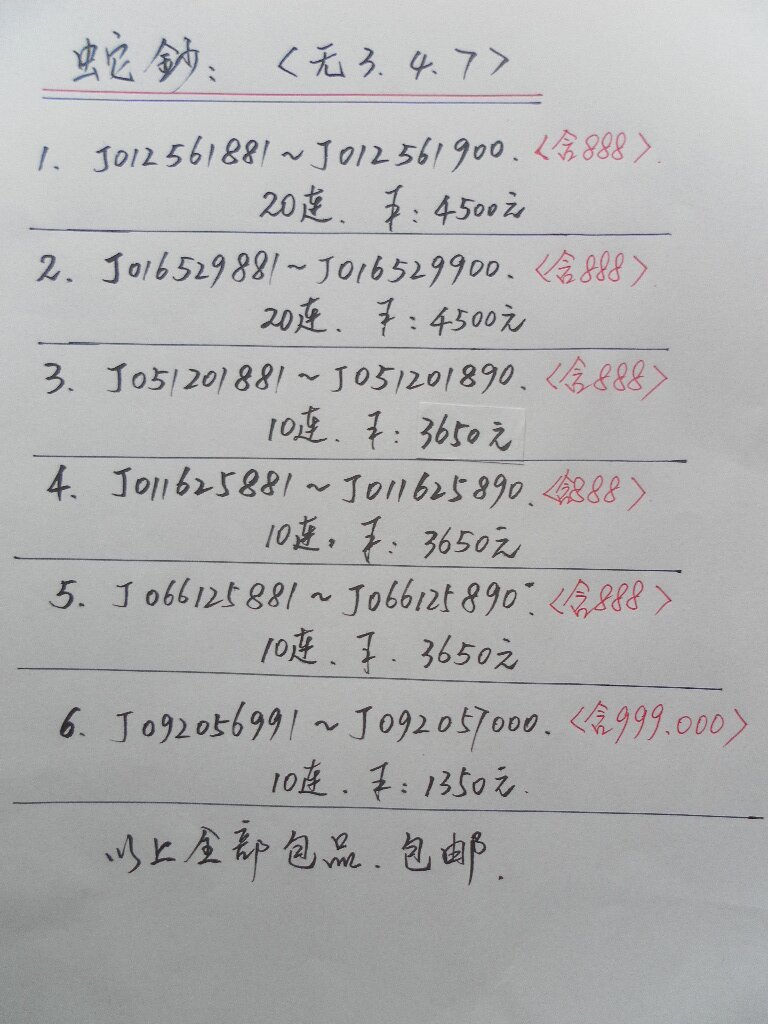 蛇鈔: <无3.4.7>
1. J012561881~J012561900. <含888>
20连. 手: 4500元
2. J016529881~J016529900. <含888>
20连. 手: 4500元
3. J051201881~J051201890. <含888>
10连. 手: 3650元
4. J011625881~J011625890. <含888>
10连. 手: 3650元
5. J066125881~J066125890. <含888>
10连. 手. 3650元
6. J092056991~J092057000. <含999.000>
10连. 手: 1350元.
以上全部包品. 包邮.